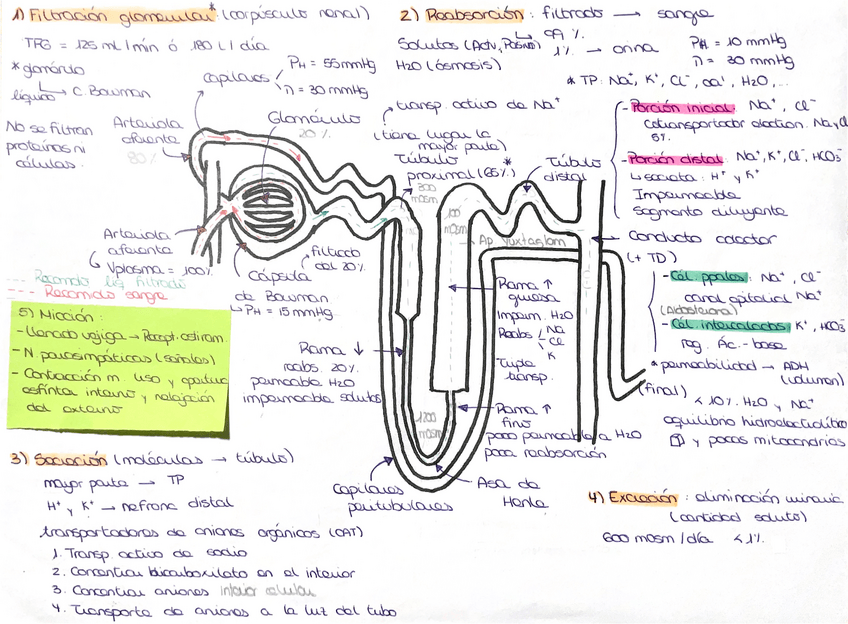 1) Filtración glomerular* (corpúsculo renal)
TFG = 125 mL/min ó 180 L/día
*glomérulo
líquido → C. Bowman
No se filtran
proteínas ni
células.
capilares
PH = 55 mmHg
π = 30 mmHg
Glomérulo
20%
Arteriola
eferente
80%
Arteriola
aferente
Vplasma = 100%
Recorrido líq. filtrado
Recorrido sangre
Cápsula
de Bowman
PH = 15 mmHg
filtrado
del 20%
2) Reabsorción: filtrado → sangre
99%
Solutos (Activ, Pasivo) 1% → orina
H2O (ósmosis)
PH = 10 mmHg
π = 30 mmHg
* TP: Na+, K+, Cl-, Ca2+, H2O,...
transp. activo de Na+
(tiene lugar la
mayor parte)
Túbulo
proximal (65%)*
300
mOsm
100
mOsm
Túbulo
distal
Ap. Yuxtaglom
- Porción inicial: Na+, Cl-
Cotransportador electron. Na, Cl
5%
- Porción distal: Na+, K+, Cl-, HCO3-
secreta: H+ y K+
Impermeable
Segmento diluyente
Conducto colector
(+ TD)
- Cél. ppales: Na+, Cl-
canal epitelial Na+
(Aldosterona)
- Cél. intercaladas: K+, HCO3-
reg. Ác.-base
* permeabilidad → ADH
(volumen)
(final)
< 10% H2O y Na+
equilibrio hidroelectrolítico
y pocas mitocondrias
Rama ↑
gruesa
Imperm. H2O
Reabs
Na
Cl
K
Triple
transp.
Rama ↓
reabs. 20%
permeable H2O
impermeable solutos
1200
mOsm
Rama ↑
fina
poco permeable a H2O
poca reabsorción
Capilares
peritubulares
Asa de
Henle
5) Micción:
- Llenado vejiga → Recept. estiram.
- N. parasimpáticos (señales)
- Contracción m. liso y apertura
esfínter interno y relajación
del externo
3) Secreción (moléculas → túbulo)
mayor parte → TP
H+ y K+ → nefrona distal
transportadores de aniones orgánicos (OAT)
1. Transp. activo de sodio
2. Concentrar dicarboxilato en el interior
3. Concentrar aniones interior celular
4. Transporte de aniones a la luz del tubo
4) Excreción: eliminación urinaria
(cantidad soluto)
600 mosm/día < 1%